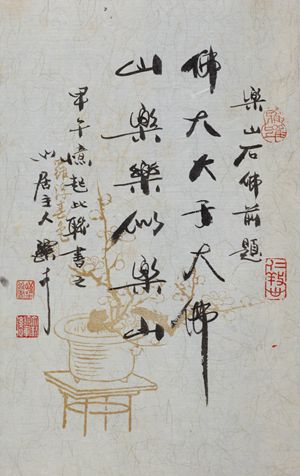 樂山石佛前題
佛大大于大佛
山樂樂似樂山
甲午憶起此聯書之
居主人